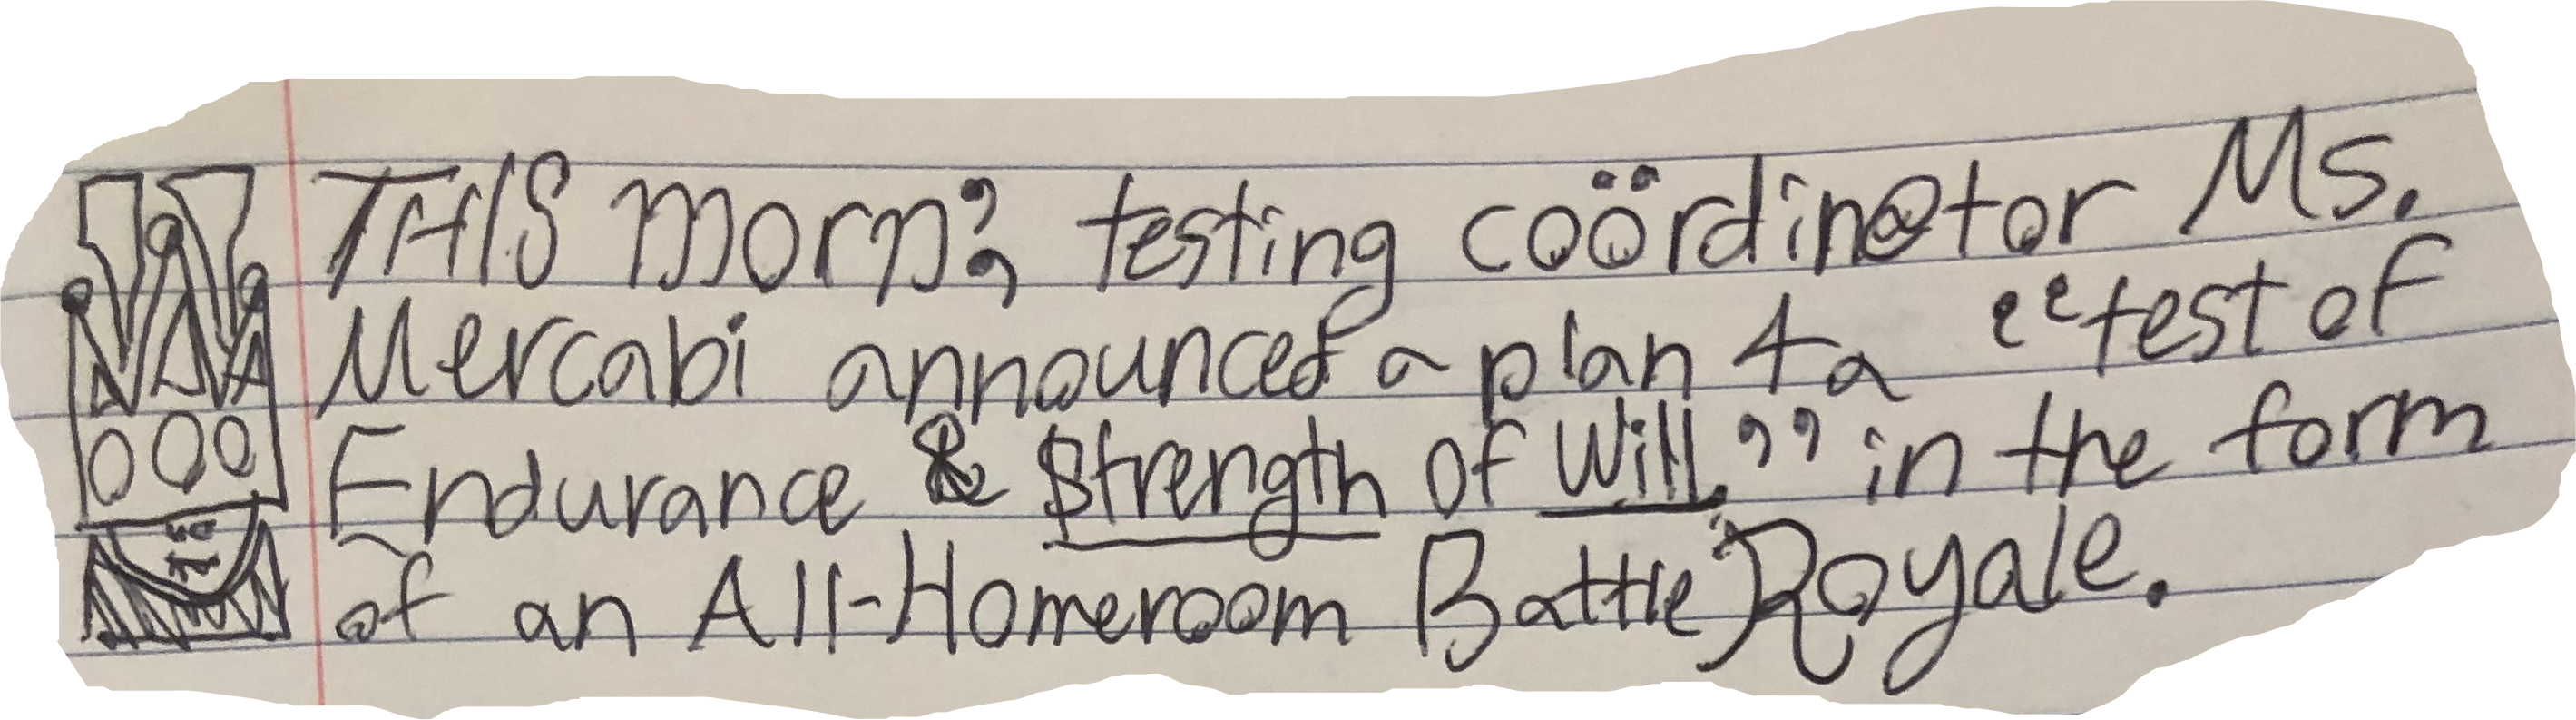 THIS morn', testing coördinator Ms.
Mercabi announced a plan 4 a “test of
Endurance & Strength of Will.” in the form
of an All-Homeroom Battle Royale.